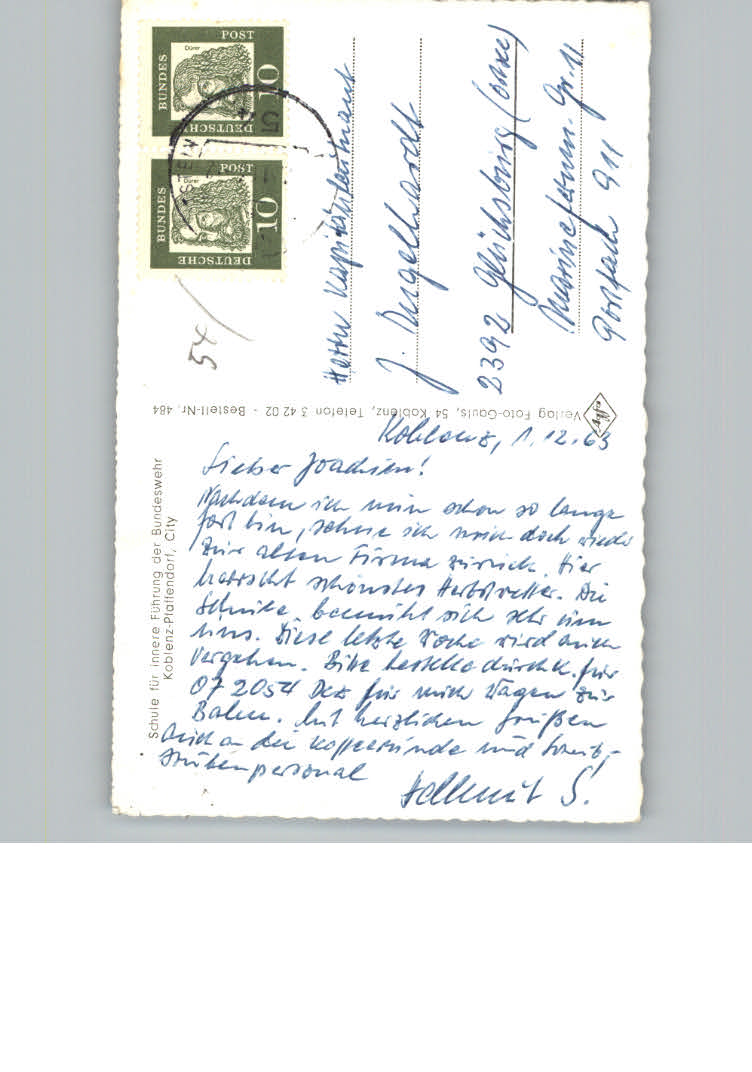 Schule für innere Führung der Bundeswehr
Koblenz-Pfaffendorf, City
Koblenz, 1.12.63
Lieber Joachim!
Nachdem ich nun schon so lange
fort bin, sehne ich mich doch wieder
zur alten Firma zurück. Hier
herrscht schönstes Herbstwetter. Die
Schule bemüht sich sehr um
uns. Diese letzte Woche wird auch
vergehen. Bitte bestelle durch für
072054 Dez für mich Wagen zur
Bahn. Mit herzlichen Grüßen
auch an die Kaffeerunde und Schreib-
stubenpersonal
Hellmut S.
Verlag Foto-Gauls, 54 Koblenz, Telefon 3 42 02 - Bestell-Nr. 484
DEUTSCHE
BUNDES
POST
10
Dürer
DEUTSCHE
BUNDES
POST
10
Dürer
54
Herrn Kapitänleutnant
J. Engelhardt
2392 Glücksburg (Ostsee)
Marinefernm. Gr. 11
Postfach 911